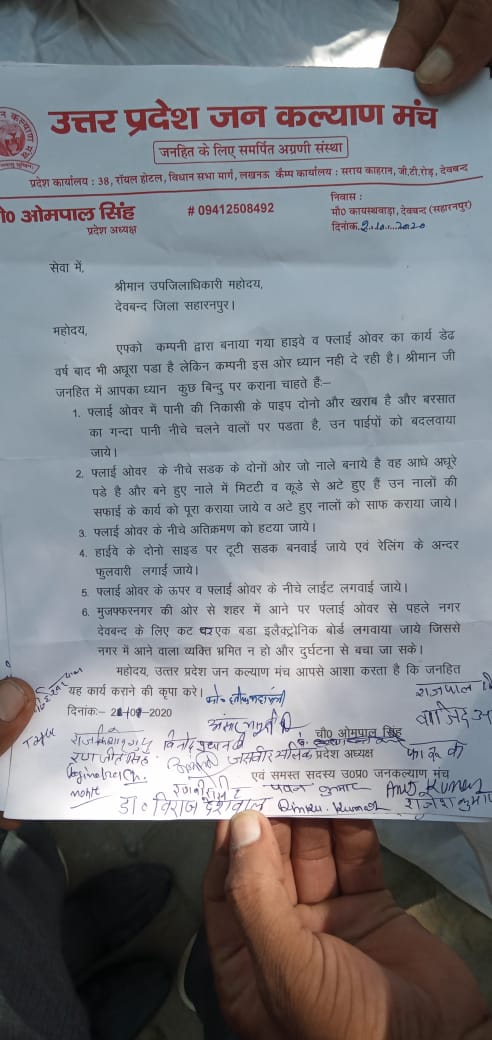 उत्तर प्रदेश जन कल्याण मंच
जनहित के लिए समर्पित अग्रणी संस्था
प्रदेश कार्यालय : 38, रॉयल होटल, विधान सभा मार्ग, लखनऊ कैम्प कार्यालय : सराय काहरान, जी.टी.रोड़, देवबन्द
चौ० ओमपाल सिंह
प्रदेश अध्यक्ष
# 09412508492
निवास :
मौ० कायस्थवाड़ा, देवबन्द (सहारनपुर)
दिनांक 2.10.2020
सेवा में,
श्रीमान उपजिलाधिकारी महोदय,
देवबन्द जिला सहारनपुर।
महोदय,
एपको कम्पनी द्वारा बनाया गया हाइवे व फ्लाई ओवर का कार्य डेढ
वर्ष बाद भी अधूरा पडा है लेकिन कम्पनी इस ओर ध्यान नही दे रही है। श्रीमान जी
जनहित में आपका ध्यान कुछ बिन्दु पर कराना चाहते हैः–
1. फ्लाई ओवर में पानी की निकासी के पाइप दोनो और खराब है और बरसात
का गन्दा पानी नीचे चलने वालों पर पडता है, उन पाईपों को बदलवाया
जाये।
2. फ्लाई ओवर के नीचे सडक के दोनों ओर जो नाले बनाये है वह आधे अधूरे
पडे है और बने हुए नाले में मिटटी व कूडे से अटे हुए हैं उन नालों की
सफाई के कार्य को पूरा कराया जाये व अटे हुए नालों को साफ कराया जाये।
3. फ्लाई ओवर के नीचे अतिक्रमण को हटया जाये।
4. हाईवे के दोनो साइड पर टूटी सडक बनवाई जाये एवं रेलिंग के अन्दर
फुलवारी लगाई जाये।
5. फ्लाई ओवर के ऊपर व फ्लाई ओवर के नीचे लाईट लगवाई जाये।
6. मुजफ्फरनगर की ओर से शहर में आने पर फ्लाई ओवर से पहले नगर
देवबन्द के लिए कट पर एक बडा इलैक्ट्रोनिक बोर्ड लगवाया जाये जिससे
नगर में आने वाला व्यक्ति भ्रमित न हो और दुर्घटना से बचा जा सके।
महोदय, उत्तर प्रदेश जन कल्याण मंच आपसे आशा करता है कि जनहित
यह कार्य कराने की कृपा करे।
राजपाल
दिनांकः– -2020
चौ० ओमपाल सिंह
जसवीर मलिक
प्रदेश अध्यक्ष
एवं समस्त सदस्य उ०प्र० जनकल्याण मंच
पवन कुमार
Anuj Kumar
डा० विराज देशवाल
Rinku Kumar
राजेश कुमार